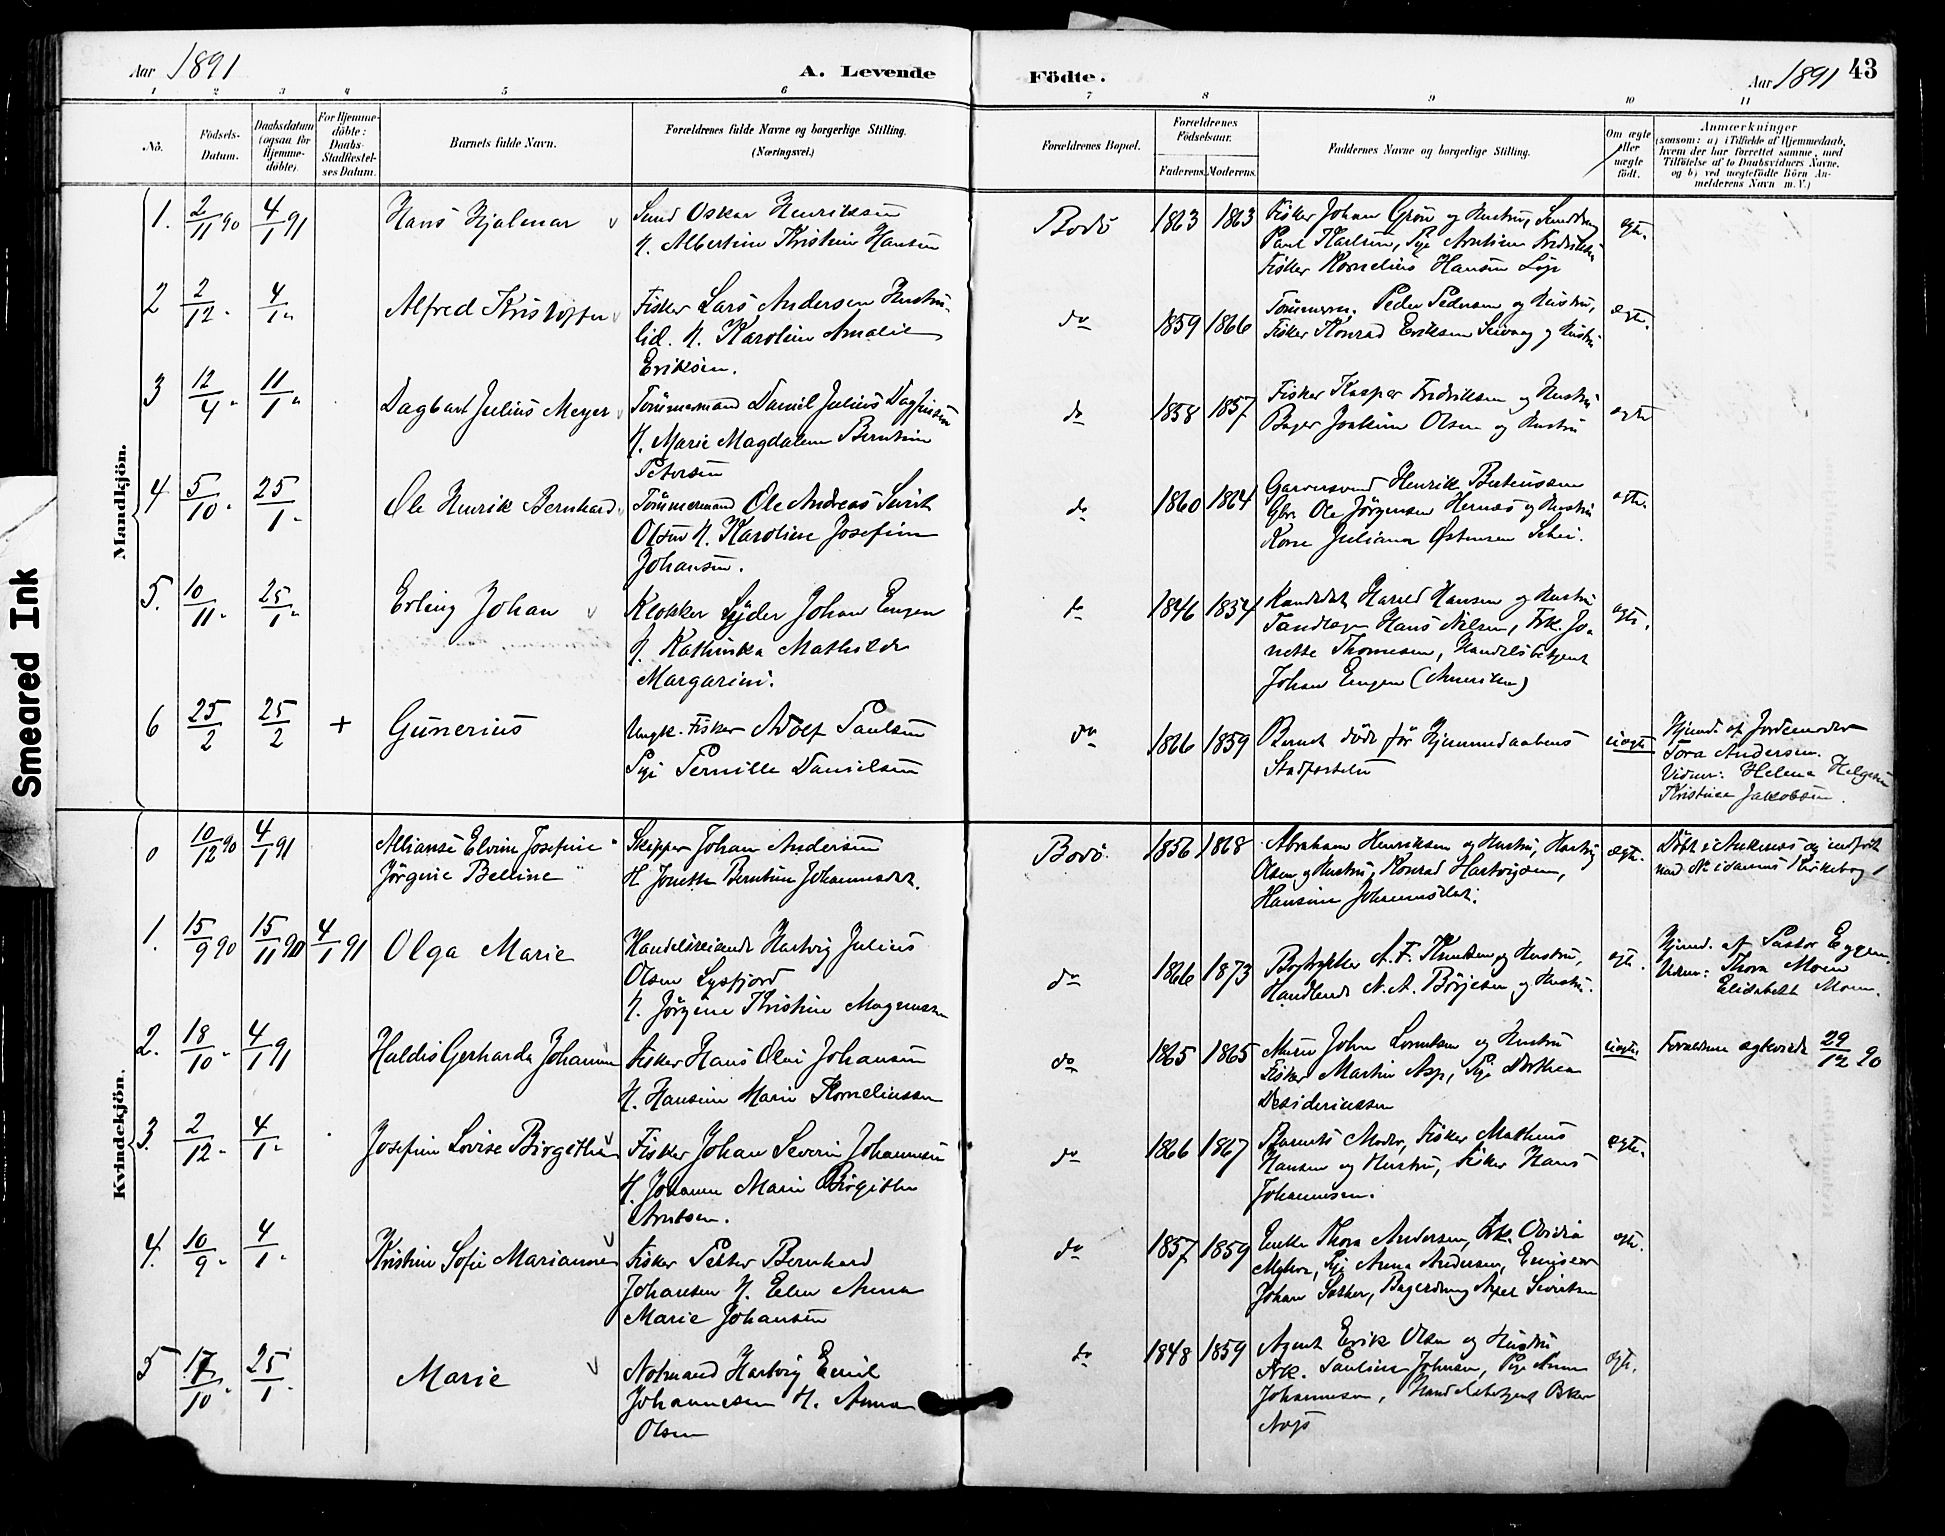 Aar 1891
A. Levende
Födte.
Aar 1891
43
1 2 3 4 5 6 7 8 9 10 11
No.
Födsels-
Datum.
Daabsdatum
(ogsaa for
Hjemme-
döbte).
For Hjemme-
döbte:
Daabs-
Stadfæstel-
ses Datum.
Barnets fulde Navn.
Forældrenes fulde Navne og borgerlige Stilling.
(Næringsvei.)
Forældrenes Bopæl.
Forældrenes
Födselsaar.
Faderens. Moderens.
Faddernes Navne og borgerlige Stilling.
Om ægte
eller
uægte
födt.
Anmærkninger
(saasom: a) i Tilfælde af Hjemmedaab,
hvem der har forrettet samme, med
Tilföielse af to Daabsvidners Navne,
og b) ved uægtefödte Börn An-
melderens Navn m. V.)
Mandkjön.
1. 2/11 90 4/1 91 Hans Hjalmar
Oskar Henriksen
H. Albertine Kristine Hansen
Bodö 1863 1863
Fisker Johan Grön og Hustru,
Paul Karlsen, Pige Arntine
Fisker Kornelius Hansen
ægte.
2 2/12 " 4/1 "
Alfred Kristoffer
Fisker Lars Andersen
lid. H. Karoline Amalie
Eriksen.
do 1859 1866
Peder Pedersen og Hustru,
Fisker Konrad Eriksen og Hustru
ægte.
3 12/4 " 11/1 "
Dagbart Julius Meyer
Tömmermand Daniel Julius Dagfinsen
H. Marie Magdalena Berntine
Petersen
do 1858 1857
Fisker Kasper Fredriksen og Hustru
Bager Joakim Olsen og Hustru
ægte
4 5/10 " 25/1 "
Ole Henrik Bernhard
Tömmermand Ole Andreas
Olsen H. Karoline Josefine
Johansen.
do 1860 1864
Garversvend Henrik Berteussen
Ole Jörgensen Hernæs og Hustru
Kone Juliana Östensen
ægte.
5. 10/11 " 25/1 "
Erling Johan
Klokker Johan Engen
H. Kathinka Mathilde
Margarini.
do 1846 1854
Hansen og Hustru
Tandlæge Hans Nilsen, Frk. Jo-
nette Thomesen, Handelsbetjent
Johan Engen (Amerika)
ægte.
6 25/2 25/2 + Gunerius
Ungk. Fisker Adolf Paulsen
Pige Pernille Danielsen
do 1866 1859
Barnet döde för Hjemmedaabens
Stadfæstelse
uægte
Hjemd. af Jordemoder
Tora Andersen.
Vidner: Helena Helgesen
Kristine Jakobsen.
Kvindekjön.
0 10/12 90 4/1 91
Allianse Elvine Josefine
Jörgine Belline
Skipper Johan Andersen
H. Jonette Berntine Johannesdt.
Bodö. 1856 1868
Abraham Henriksen og Hustru, Hartvig
Olsen og Hustru, Konrad Hartvigsen,
Hansine Johannesdat.
ægte.
Döbt i og indfört
Kirkebog
1. 15/9 90 15/11 90 4/1 91 Olga Marie
Handelsreisende Hartvig Julius
Olsen Lysfjord
H. Jörgine Kristine Magnussen
do 1866 1873
Bogtrykker A. F. Knudsen og Hustru,
Handlende A. A. Börjesen og Hustru.
ægte.
Hjemd. af Pastor Eggen.
Vidner: Thora Moen
Elisabeth Moen.
2. 18/10 " 4/1 91
Haldis Gerharda Johanne
Fisker Hans Olai Johansen
H. Hansine Marie Korneliussen
do 1865 1865
Murer Johan Lorentsen og Hustru
Fisker Martin Asp, Pige Dorthea
Desideriussen
uægte.
Forældrene ægteviede 29/12 90
3. 2/12 " 4/1 "
Josefine Lovise Birgithe
Fisker Johan Severin Johannesen
H. Johanna Marie Birgithe
Arntsen.
do 1866 1867
Barnets Moder, Fisker Matheus
Hansen og Hustru, Fisker Hans
Johannesen.
ægte.
4. 10/9 " 4/1 "
Kristine Sofie Marianne
Fisker Petter Bernhard
Johansen H. Elen Anna
Marie Johansen
do 1857 1859
Enke Thora Andersen, Frk. Ovidia
Myhre, Pige Anna Andersen, Emissær
Johan Sæther, Bagerdreng Axel Sivertsen
ægte.
5 17/10 " 25/1 "
Marie
Notmand Hartvig Emil
Johannesen H. Anna
Olsen
do 1848 1859
Agent Erik Olsen og Hustru
Frk. Pauline Johnsen, Pige Anna
Johannesen, Handelsbetjent Osker
ægte.
Smeared Ink